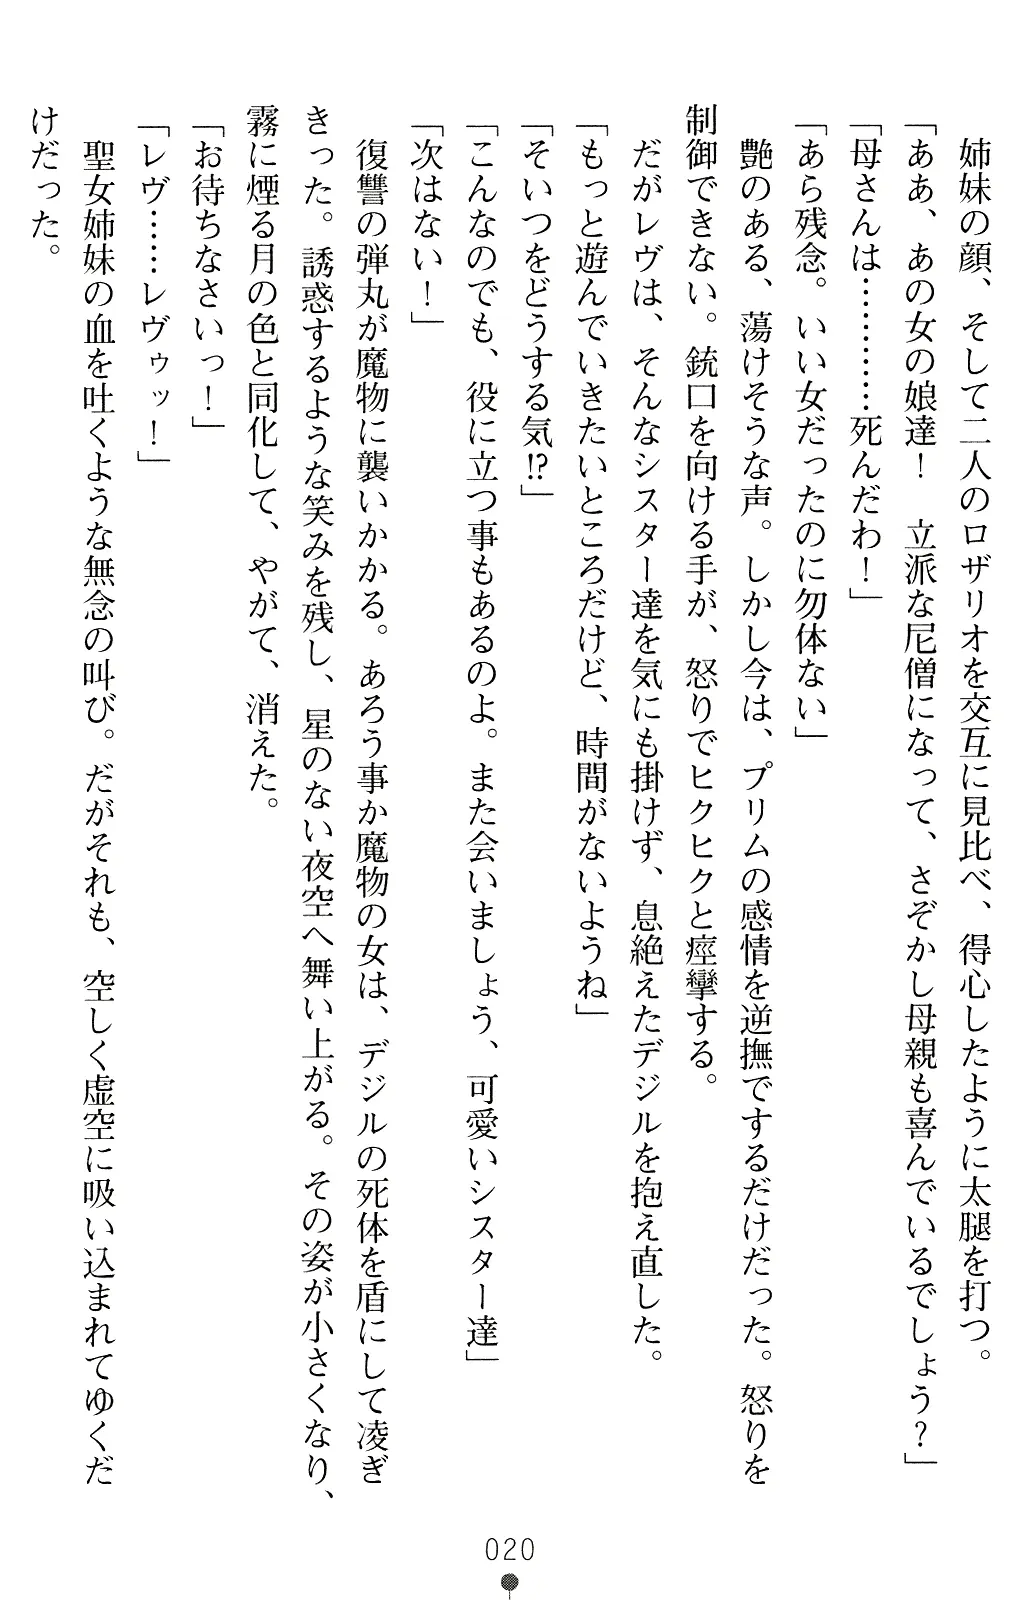 姉妹の顔、そして二人のロザリオを交互に見比べ、得心したように太腿を打つ。
「ああ、あの女の娘達！　立派な尼僧になって、さぞかし母親も喜んでいるでしょう？」
「母さんは…………死んだわ！」
「あら残念。いい女だったのに勿体ない」
艶のある、蕩けそうな声。しかし今は、プリムの感情を逆撫でするだけだった。怒りを
制御できない。銃口を向ける手が、怒りでヒクヒクと痙攣する。
だがレヴは、そんなシスター達を気にも掛けず、息絶えたデジルを抱え直した。
「もっと遊んでいきたいところだけど、時間がないようね」
「そいつをどうする気!?」
「こんなのでも、役に立つ事もあるのよ。また会いましょう、可愛いシスター達」
「次はない！」
復讐の弾丸が魔物に襲いかかる。あろう事か魔物の女は、デジルの死体を盾にして凌ぎ
きった。誘惑するような笑みを残し、星のない夜空へ舞い上がる。その姿が小さくなり、
霧に煙る月の色と同化して、やがて、消えた。
「お待ちなさいっ！」
「レヴ……レヴゥッ！」
聖女姉妹の血を吐くような無念の叫び。だがそれも、空しく虚空に吸い込まれてゆくだ
けだった。
020